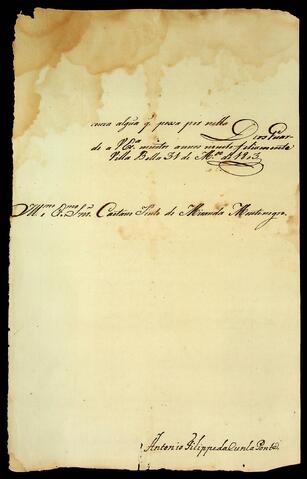 couza algũa q̃ possa por nella Deos Guar-
de a V Exª muitos annos muito felismente
Villa Bella 31 de M.ço de 1803
Illmo e Exmo Snr. Caetano Pinto de Miranda Montenegro.
Antonio Filippe da Cunha Ponte